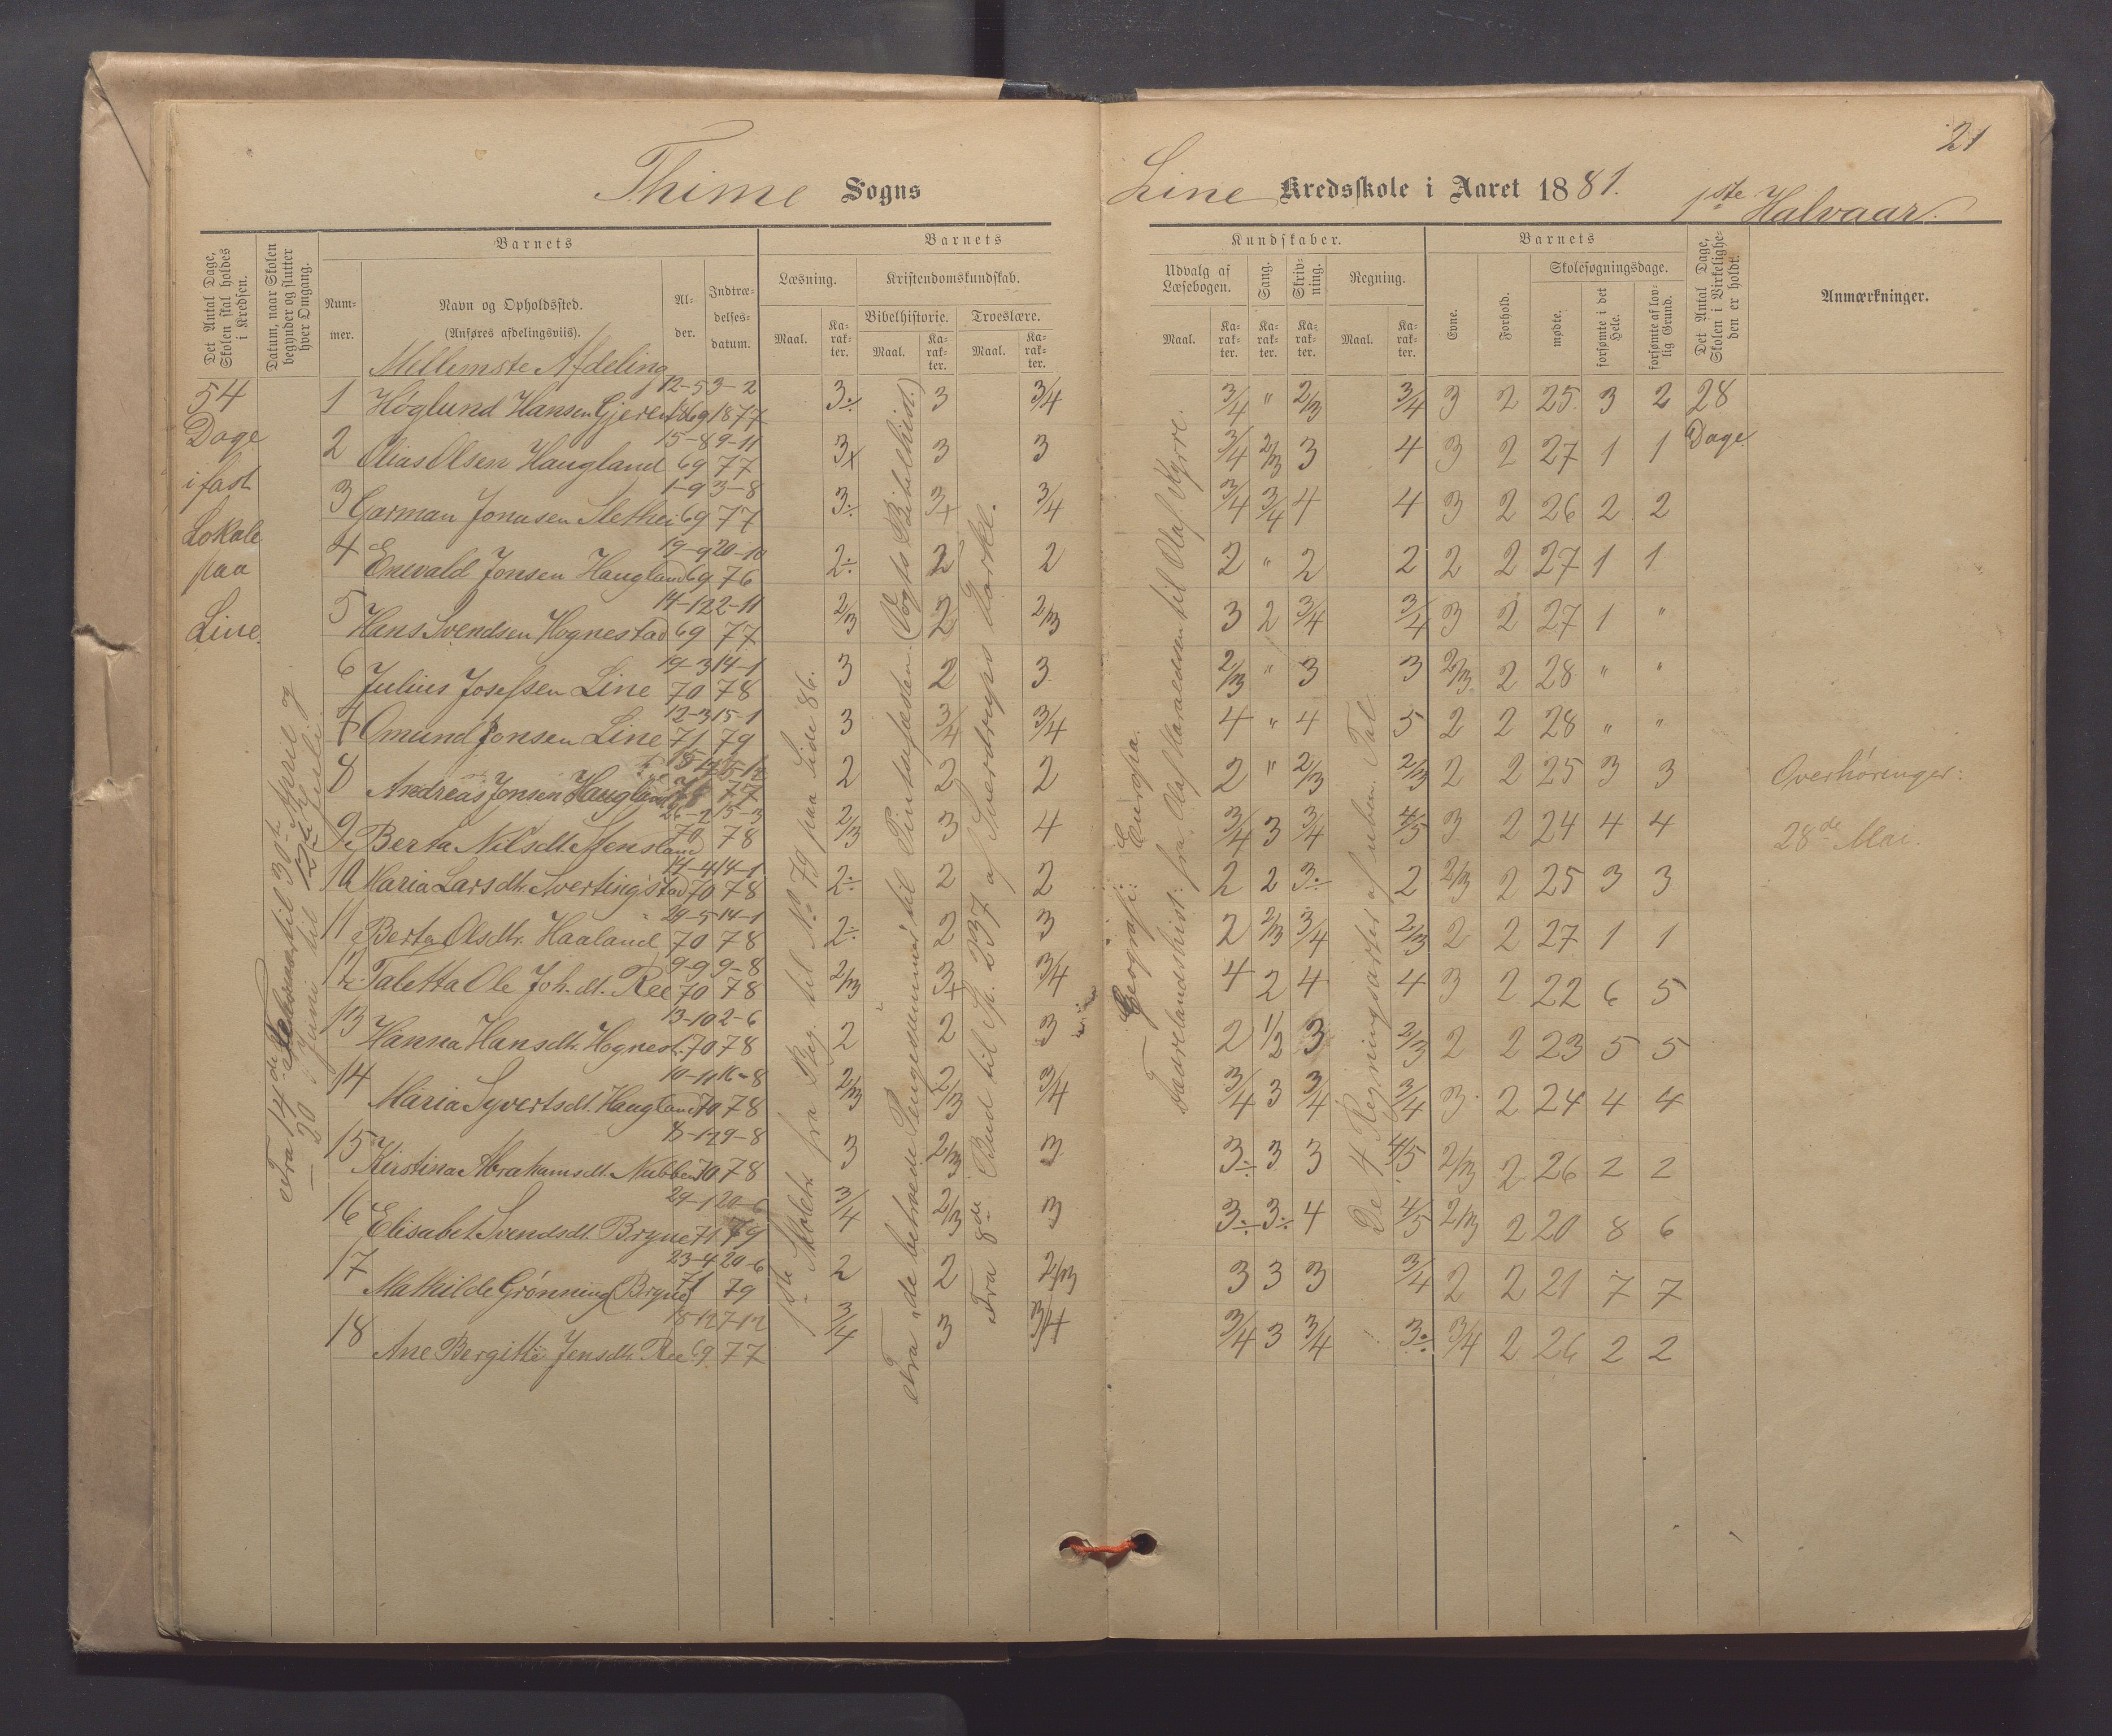 21
Thime Sogns
Line Kredsskole i Aaret 1881. 1ste Halvaar.
Det Antal Dage, Skolen skal holdes i Kredsen.
Datum, naar Skolen begynder og slutter hver Omgang.
Barnets
Nummer.
Navn og Opholdssted.
(Anføres afdelingsviis).
Alder.
Indtrædelsesdatum.
Barnets
Læsning.
Maal.
Karakter.
Kristendomskundskab.
Bibelhistorie.
Maal.
Karakter.
Troeslære.
Maal.
Karakter.
Kundskaber.
Udvalg af Læsebogen.
Maal.
Karakter.
Sang.
Karakter.
Skrivning.
Karakter.
Regning.
Maal.
Karakter.
Barnets
Evne.
Forhold.
Skolesøgningsdage.
mødte.
forsømte i det Hele.
forsømte af lovlig Grund.
Det Antal Dage, Skolen i Virkeligheden er holdt.
Anmærkninger.
Mellemste Afdeling
54
Dage
i fast
Lokale
paa
Line.
Fra 14de Februar til 30te April og
— 20 Juni til 12te Juli.
1ste Skoletr fra Beg. til No 79 paa Side 86.
Fra "de betroede Pengesummer" til Pintsefesten (Vogts Bibelhist.)
Fra 8de Bud til Sp. 237 af Sverdrups Forkl.
Geografi: Europa.
Fædrelandshist: fra Olaf Haraldsen til Olaf Kyrre.
De 4 Regningsarter af uben. Tal.
1 Høglund Hansen Gjeren 12-5 1869 3-2 1877 3÷ 3 3/4 3/4 " 2/3 3/4 3 2 25 3 2 28
Dage
2 Olias Olsen Haugland 15-8 69 9-11 77 3x 3 3 3/4 2/3 3 4 3 2 27 1 1
3 Garman Jonasen Slethei 1-9 69 3-8 77 3÷ 3+ 3/4 3/4 3/4 4 4 3 2 26 2 2
4 Enevald Jonsen Haugland 19-9 69 20-10 76 2÷ 2 2 2 " 2 2 2 2 27 1 1
5 Hans Svendsen Hognestad 14-12 69 2-11 77 2/3 2 2/3 3 2 3/4 3/4 3 2 27 1 "
6 Julius Josefsen Line 19-3 70 14-1 78 3 2 3 2/3 " 3 3 2/3 2 28 " "
7 Omund Jonsen Line 12-3 71 15-1 79 3 3/4 3/4 4 " 4 5 2 2 28 " "
8 Andreas Jonsen Haugland 77 2 2 2 2 " 2/3 2/3 2 2 25 3 3 Overhøringer:
9 Berta Nilsdt. Stensland 26-2 70 15-3 78 2/3 3 4 3/4 3 3/4 4/5 3 2 24 4 4 28de Mai.
10 Maria Larsdtr Svertingstad 14-4 70 14-1 78 2÷ 2 2 2 2 3÷ 2 2/3 2 25 3 3
11 Berta Olsdtr. Haaland 29-5 70 14-1 78 2÷ 2 3 2 2/3 3/4 2/3 2 2 27 1 1
12 Taletta Ole Joh.dt. Ree 9-9 70 9-8 78 2/3 3+ 3/4 4 2 4 4 3 2 22 6 5
13 Hanna Hansdtr. Hognest. 13-10 70 2-6 78 2 2 3 2 1/2 3 2/3 2 2 23 5 5
14 Maria Syvertsdt. Haugland 10-11 70 16-8 78 2/3 2/3 3/4 3/4 3 3/4 3/4 3 2 24 4 4
15 Kirstina Abrahamsdt. Nubben 70 9-8 78 3 2/3 3 3÷ 3 3 4/5 2/3 2 26 2 2
16 Elisabet Svendsdt. Bryne 29-1 71 20-6 79 3/4 2/3 3 3÷ 3÷ 4 4/5 2/3 2 20 8 6
17 Mathilde Grønning (Bryne) 23-4 71 20-6 79 2 2 2/3 3 3 3 3/4 2 2 21 7 7
18 Ane Bergitte Jensdtr Ree 18-12 69 7-12 77 3/4 3 3/4 3/4 3 3/4 3÷ 3/4 2 26 2 2